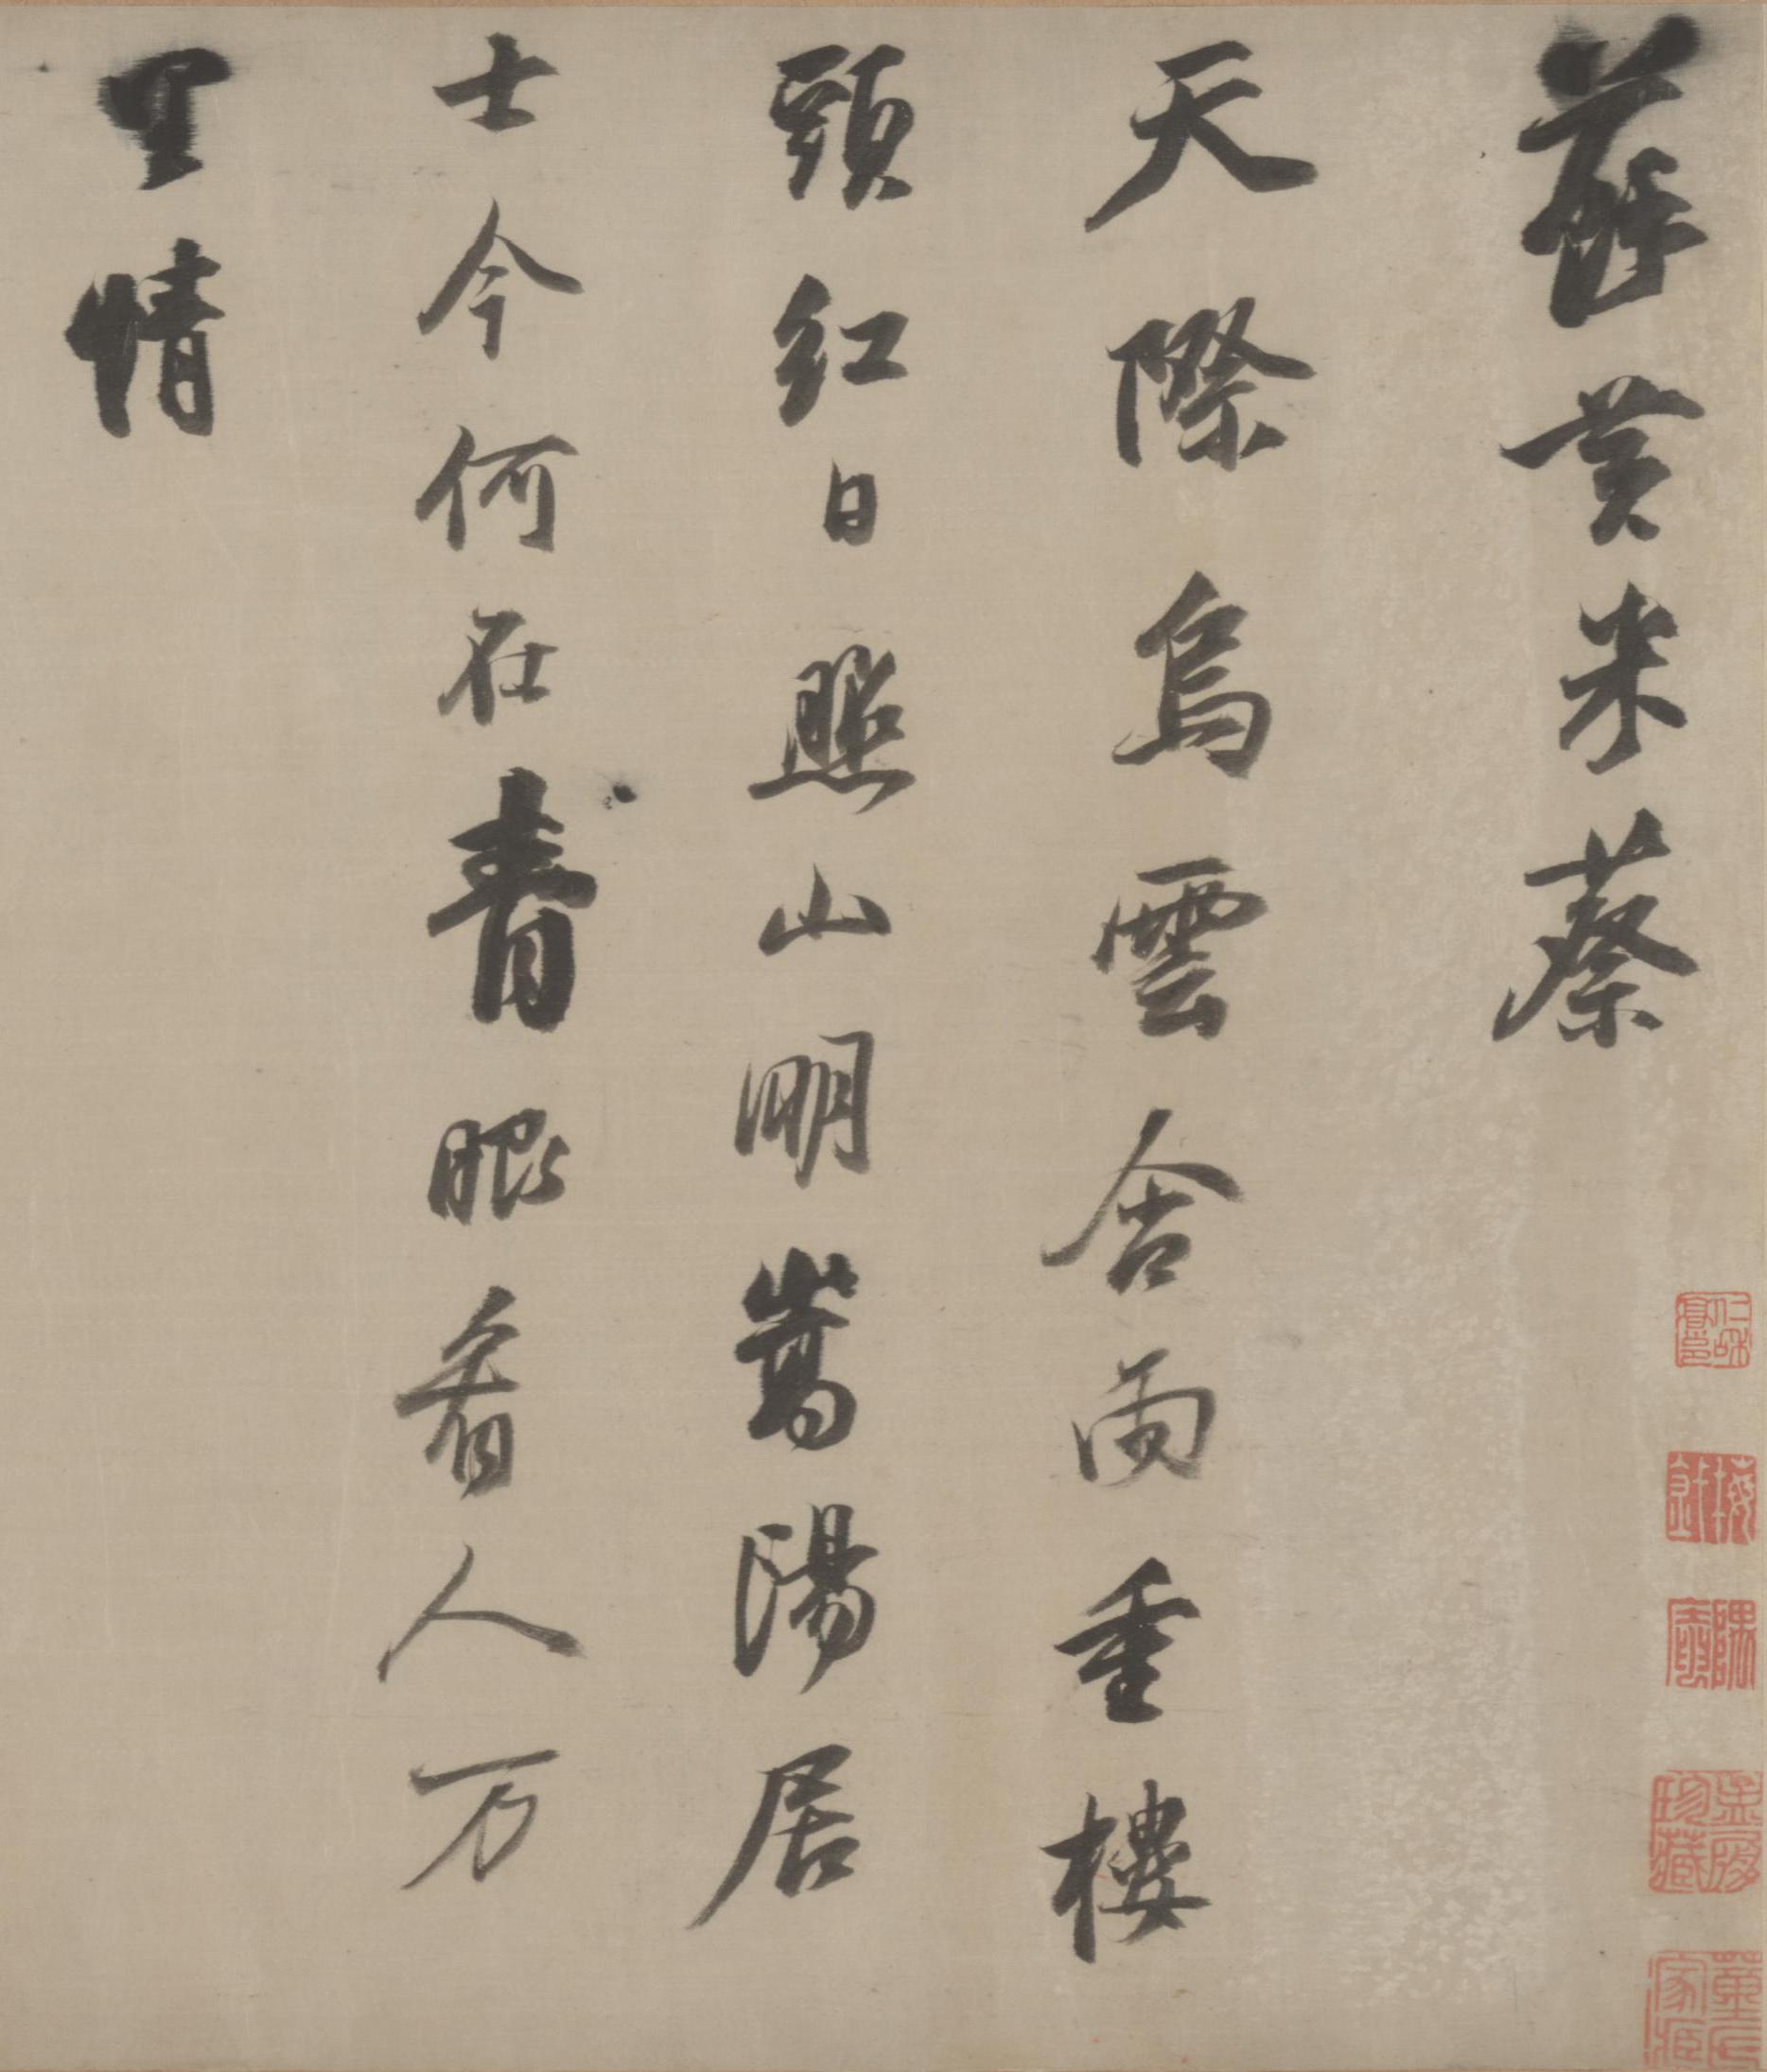 蘇黄米蔡
天際烏雲含雨重樓
頭紅日照山明嵩陽居
士今何在青眼看人万
里情
珍藏